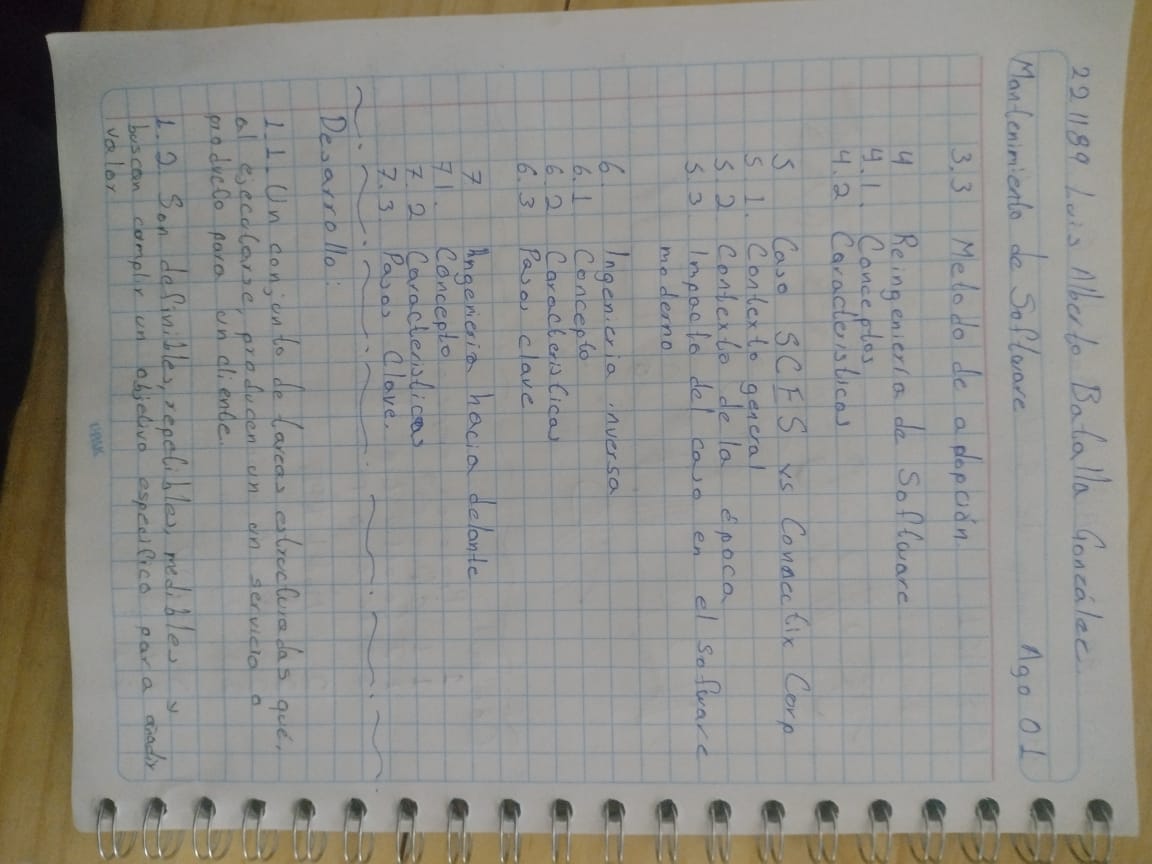 221189 Luis Alberto Batalla González
Mantenimiento de Software Ago 01
3.3 Metodo de adopción
4 Reingeniería de Software
4.1. Conceptos
4.2 Caracteristicas
5 Caso SCES vs Connectix Corp
5 1. Contexto general
5 2 Contexto de la época
5 3 Impacto del caso en el software
moderno
6. Ingenieria inversa
6.1 Concepto
6 2 Caracteristicas
6.3 Pasos clave
7 Ingenieria hacia delante
7 1. Concepto
7.2 Caracteristicas
7.3 Pasos Clave.
Desarrollo:
1.1. Un conjunto de tareas estructuradas qué,
al ejecutarse, producen un un servicio o
producto para un cliente.
1.2. Son definibles, repetibles, medibles y
buscan cumplir un objetivo específico para añadir
valor